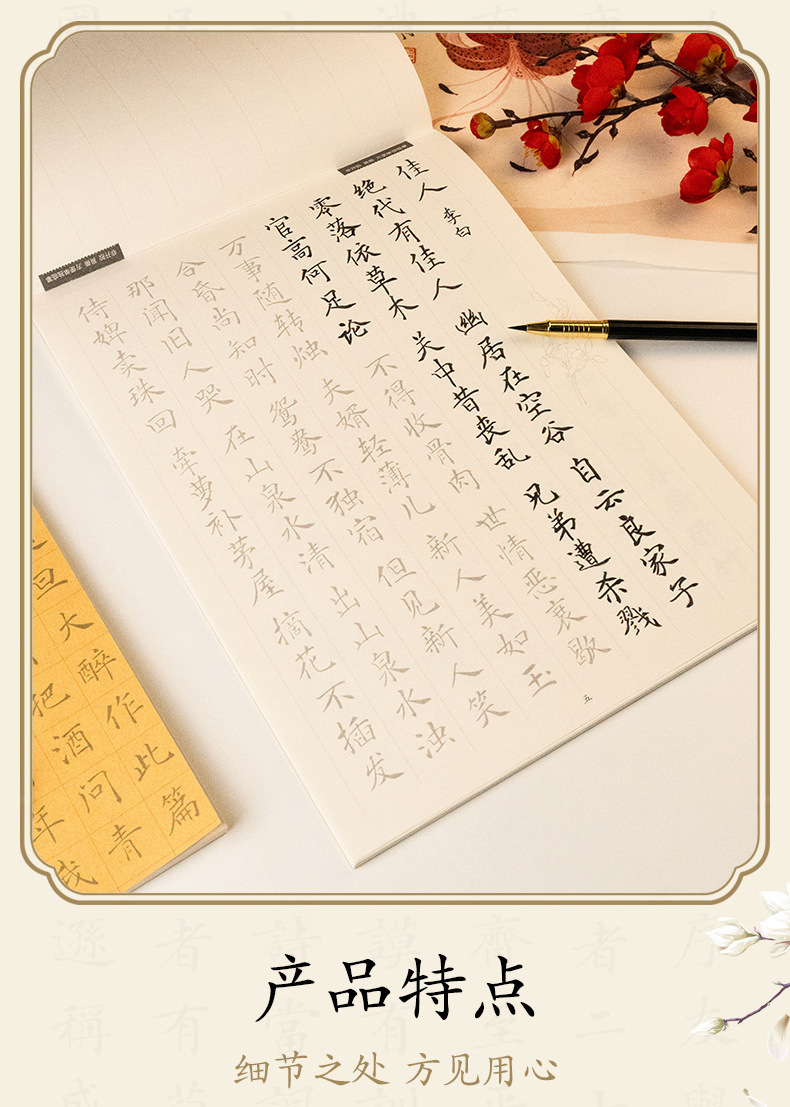 佳人 李白
绝代有佳人 幽居在空谷 自云良家子
零落依草木 关中昔丧乱 兄弟遭杀戮
官高何足论 不得收骨肉 世情恶衰歇
万事随转烛 夫婿轻薄儿 新人美如玉
合昏尚知时 鸳鸯不独宿 但见新人笑
那闻旧人哭 在山泉水清 出山泉水浊
侍婢卖珠回 牵萝补茅屋 摘花不插发
五
旦大醉作此篇
把酒问青
年
产品特点
细节之处 方见用心